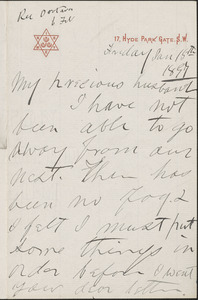 17, HYDE PARK GATE, S.W.
Friday Jan 15th
1897
My precious husband
I have not
been able to go
away from our
nest. There has
been no fog &
I felt I must put
some things in
order before I went
Your dear letter